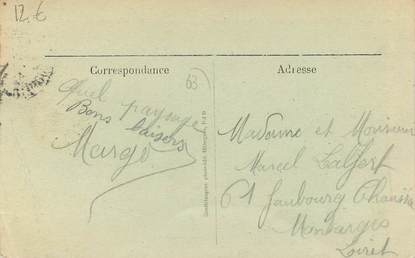 12.6
Correspondance
Adresse
63
Quel paysage
Bons baisers
Margo
Madame et Monsieur
Marcel
61 faubourg Chaussée
Montargis
Loiret